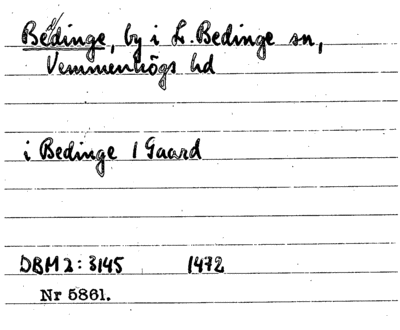 Bedinge, by i L. Bedinge sn,
Vemmenhögs hd
i Bedinge 1 Gaard
DBM 2: 3145 1472
Nr 5861.